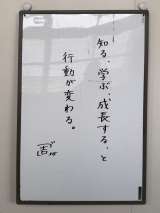 知る、学ぶ、成長する、と
行動が変わる。